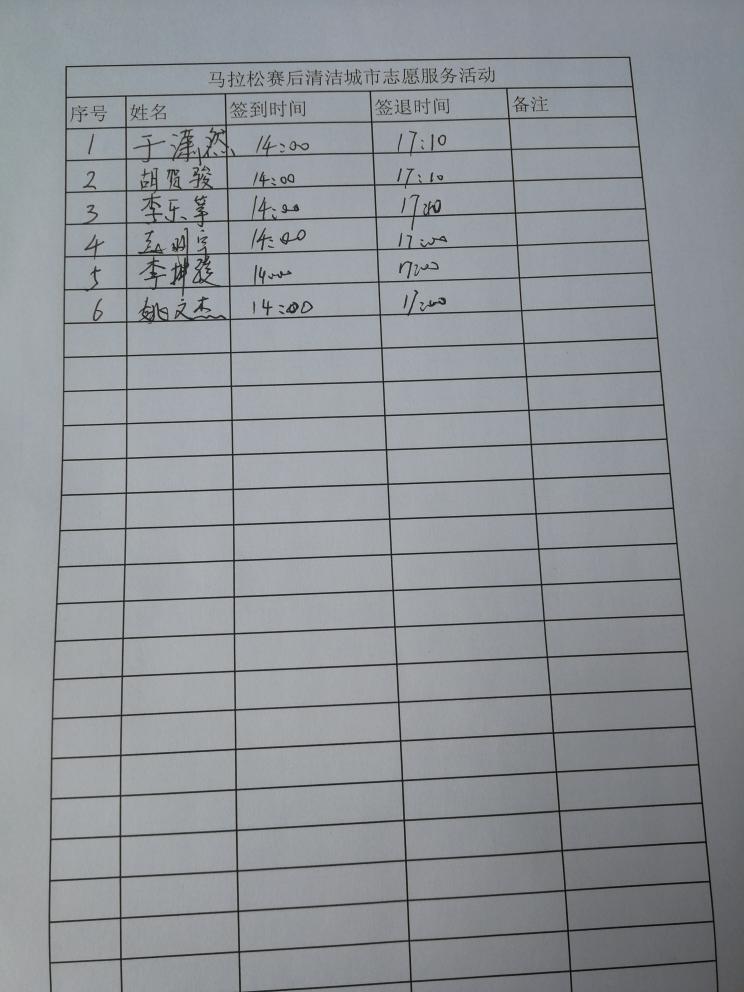 马拉松赛后清洁城市志愿服务活动
序号 姓名 签到时间 签退时间 备注
1 于潇然 14:00 17:10
2 胡贺骏 14:00 17:10
3 李乐 14:00
4 14:00 17:00
5 李 14:00 17:00
6 姚文杰 14:00 17:00